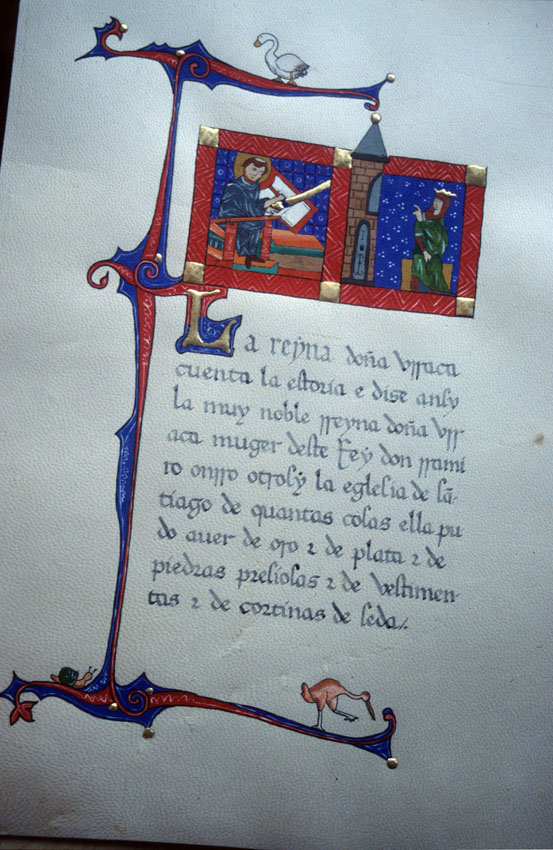 La reyna doña vrraca
cuenta la eſtoria e dise anſy
la muy noble rreyna doña vrr
aca muger deſte Rey don rrami
ro onrro otroſy la egleſia de ſā-
tiago de quantas coſas ella pu
do auer de oro ⁊ de plata ⁊ de
piedras preſioſas ⁊ de veſtimen-
tas ⁊ de cortinas de ſeda/.